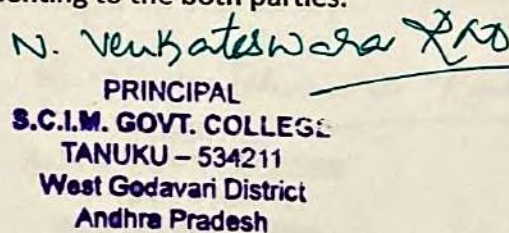 to the both parties.
N. Venkateswara Rao
PRINCIPAL
S.C.I.M. GOVT. COLLEGE
TANUKU – 534211
West Godavari District
Andhra Pradesh